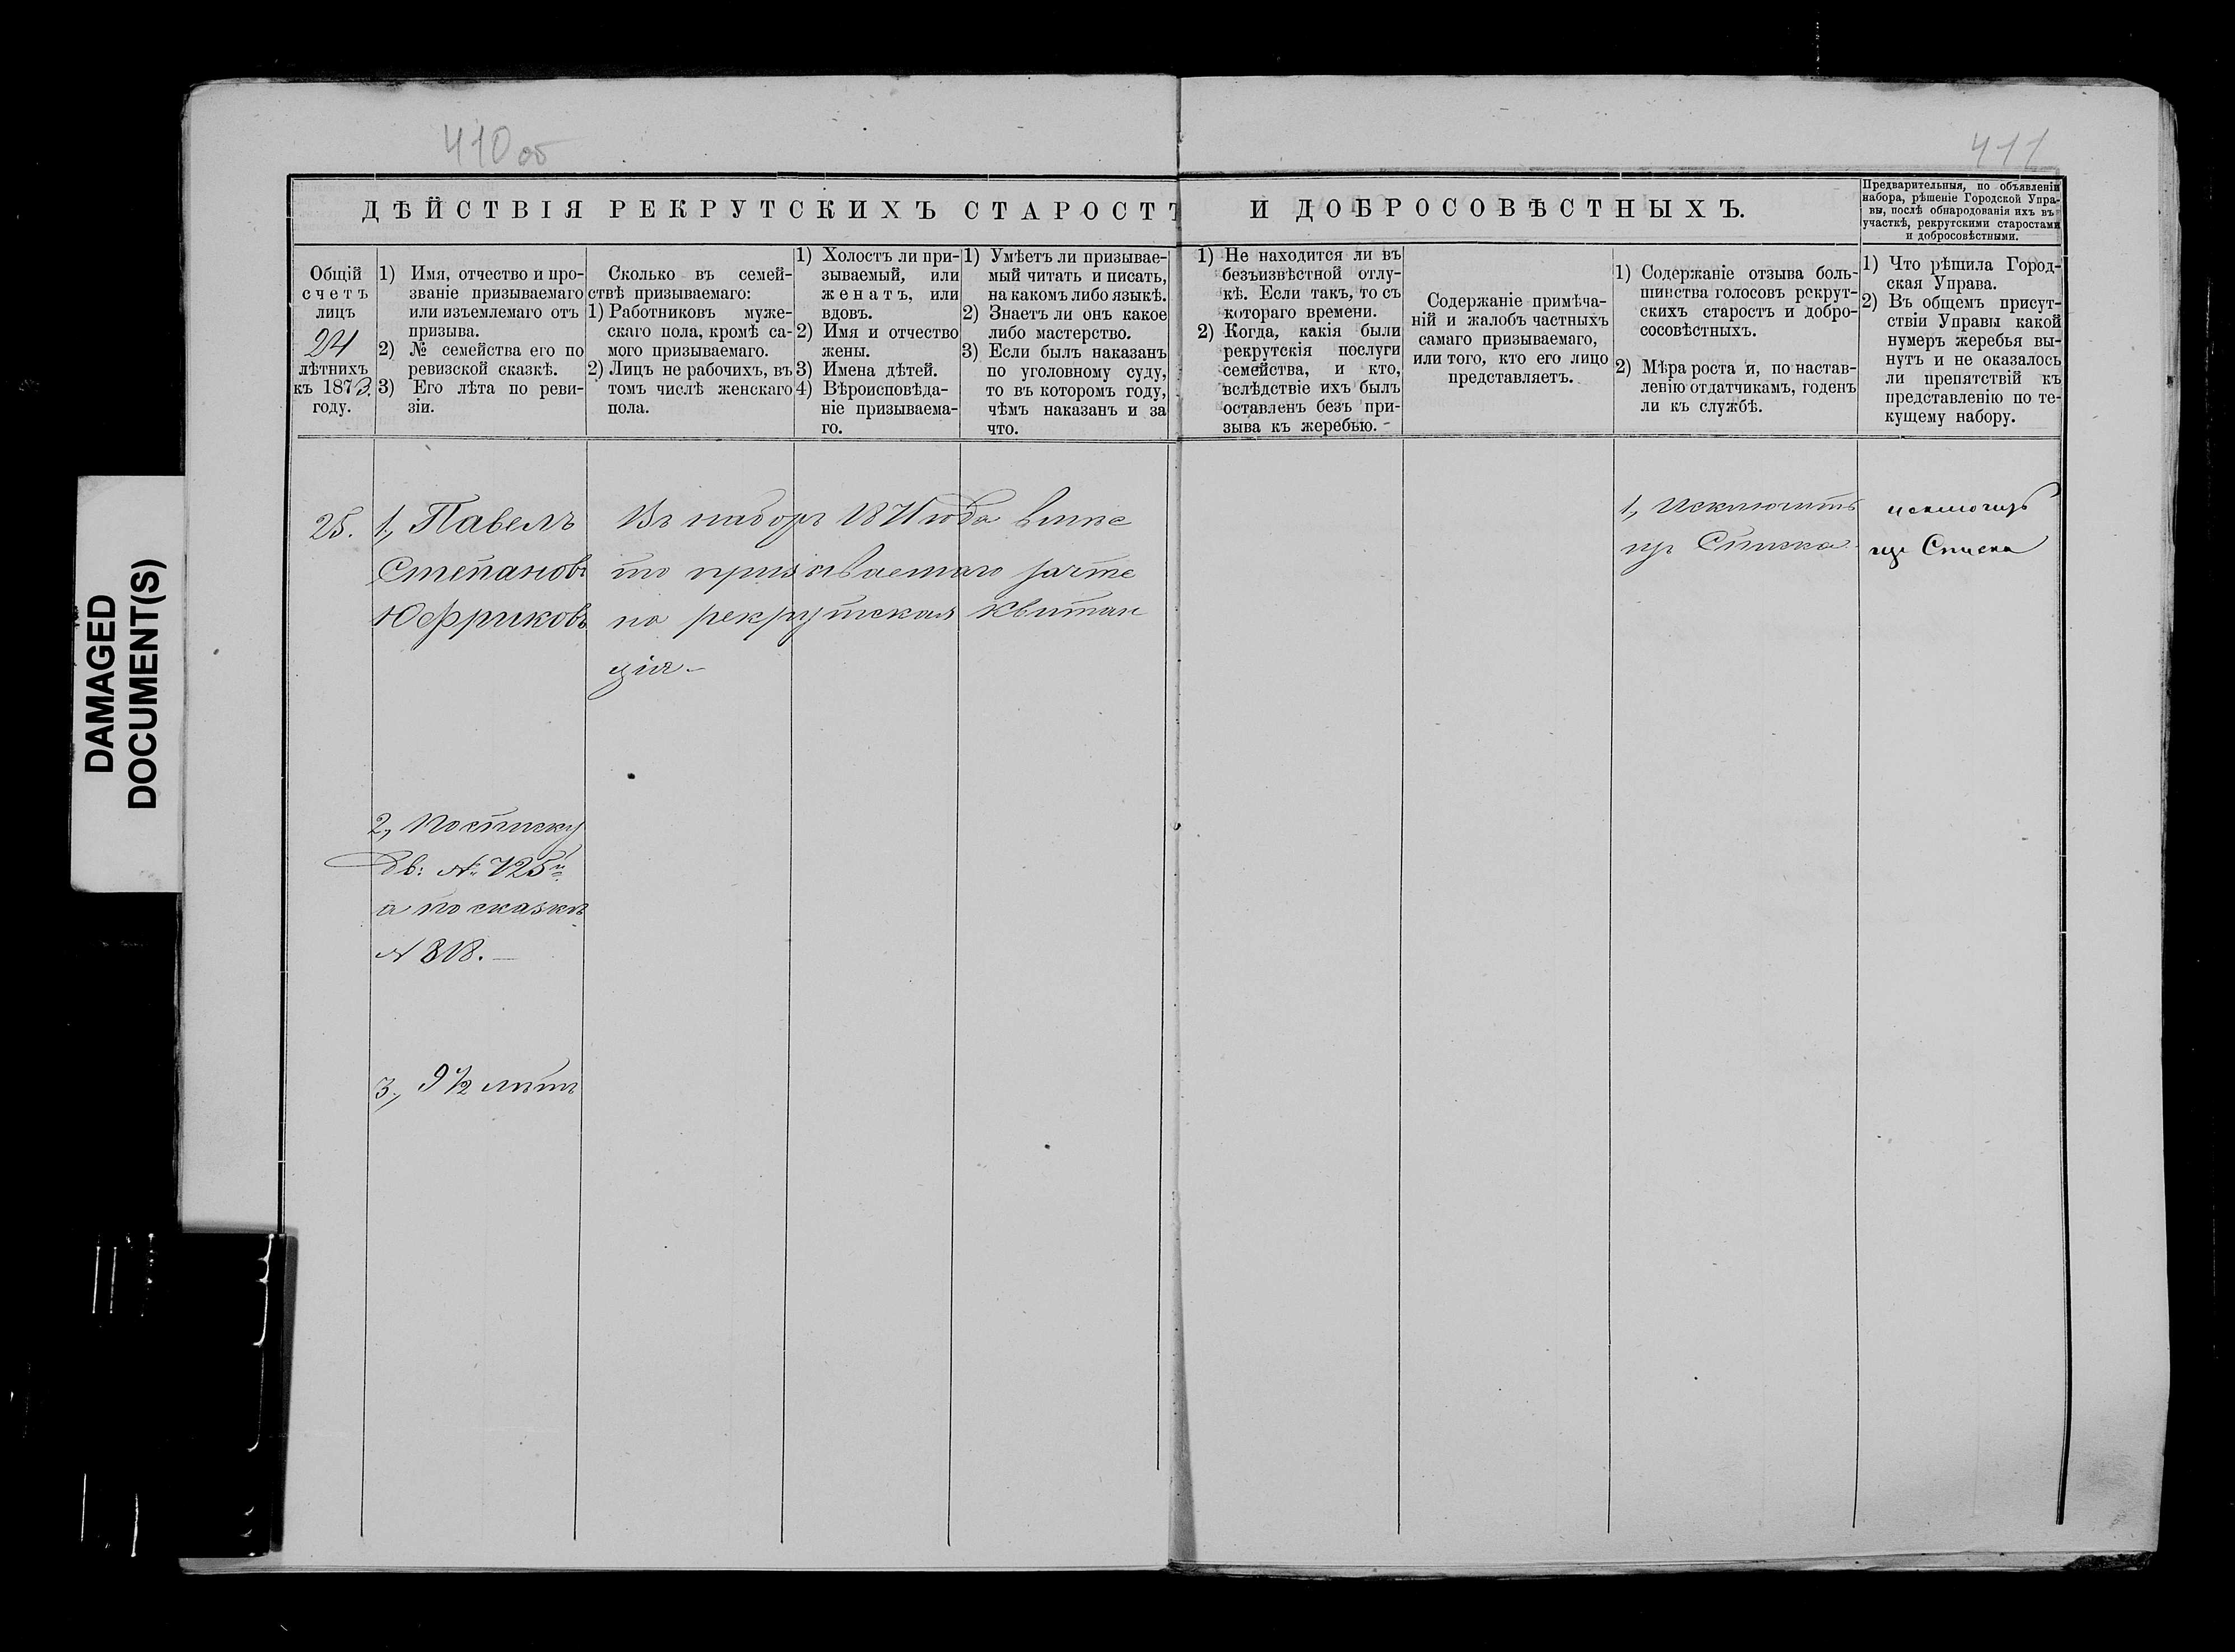 410 об
411
ДѢЙСТВІЯ РЕКРУТСКИХЪ СТАРОСТЪ И ДОБРОСОВѢСТНЫХЪ.
Предварительныя, по объявленіи
набора, рѣшеніе Городской Упра-
вы, послѣ обнародованія ихъ въ
участкѣ, рекрутскими старостами
и добросовѣстными.
Общій
счетъ
лицъ
24
лѣтнихъ
къ 1873.
году.
1) Имя, отчество и про-
званіе призываемаго
или изъемлемаго отъ
призыва.
2) № семейства его по
ревизской сказкѣ.
3) Его лѣта по реви-
зіи.
Сколько въ семей-
ствѣ призываемаго:
1) Работниковъ муже-
скаго пола, кромѣ са-
мого призываемаго.
2) Лицъ не рабочихъ, въ
томъ числѣ женскаго
пола.
1) Холостъ ли при-
зываемый, или
женатъ, или
вдовъ.
2) Имя и отчество
жены.
3) Имена дѣтей.
4) Вѣроисповѣда-
ніе призываема-
го.
1) Умѣетъ ли призывае-
мый читать и писать,
на какомъ либо языкѣ.
2) Знаетъ ли онъ какое
либо мастерство.
3) Если былъ наказанъ
по уголовному суду,
то въ которомъ году,
чѣмъ наказанъ и за
что.
1) Не находится ли въ
безъизвѣстной отлу-
кѣ. Если такъ, то съ
котораго времени.
2) Когда, какія были
рекрутскія послуги
семейства, и кто,
вслѣдствіе ихъ былъ
оставленъ безъ при-
зыва къ жеребью.
Содержаніе примѣча-
ній и жалобъ частныхъ
самаго призываемаго,
или того, кто его лицо
представляетъ.
1) Содержаніе отзыва боль-
шинства голосовъ рекрут-
скихъ старостъ и добро-
сосовѣстныхъ.
2) Мѣра роста и, по настав-
ленію отдатчикамъ, годенъ
ли къ службѣ.
1) Что рѣшила Город-
ская Управа.
2) Въ общемъ присут-
ствіи Управы какой
нумеръ жеребья вы-
нутъ и не оказалось
ли препятствій къ
представленію по те-
кущему набору.
25.
1, Павелъ
Степановъ
Юфриковъ
2, По списку
дв: № 725й
а по сказкѣ
№ 818.—
3, 9½ лѣтъ
Въ наборъ 1871 года вмѣс
то призываемаго зачте
на рекрутская квитан
ція.—
1, Исключить
изъ Списка
исключить
изъ Списка
DAMAGED
DOCUMENT(S)